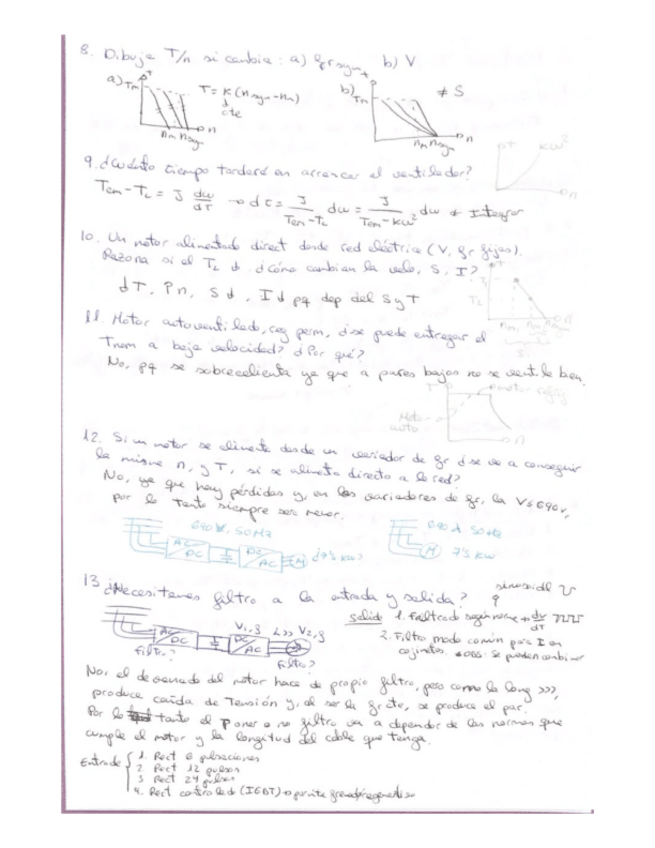 8. Dibuja T/n si cambia: a) fsyn, b) V
a) Tm T = K (nsyn - nm) b) Tm ≠ S
cte
nm nsyn n nm nsyn n
9. ¿Cuánto tiempo tardará en arrancar el ventilador? T Kω²
Tem - TL = J dω/dt → dt = J/(Tem - TL) dω = J/(Tem - Kω²) dω Integrar
n
10. Un motor alimentado direct desde red eléctrica (V, fr fijas).
Razona si el TL ↓ ¿Cómo cambian la velo, S, I?
↓T, ↑n, S↓, I↓ pq dep del S y T
T TL nm nm n
S
11. Motor autoventilado, reg perm, ¿se puede entregar el
Tnom a baja velocidad? ¿Por qué?
No, pq se sobrecalienta ya que a pares bajos no se ventila bien.
T motor
Moto auto
n
12. Si un motor se alimenta desde un variador de fr ¿se va a conseguir
la misma n, y T, si se alimenta directo a la red?
No, ya que hay pérdidas y, en los variadores de fr, la V≤690v,
por lo tanto siempre será menor.
690 V, 50Hz 690 V 50Hz
AC/DC DC/AC M ¿75 kw? M 75 kw
13 ¿Necesitamos filtro a la entrada y salida? sinusoidal
AC/DC V1,f DC/AC L>> V2,f
filtro? filtro?
salida 1. Filtrado según norma → dv/dt
2. Filtro modo común para I en
cojinetes. * OBS: Se pueden combinar
No, el devanado del motor hace de propio filtro, pero como la long >>>,
produce caída de Tensión y, al ser la fr cte, se produce el par.
Por lo tanto el poner o no filtro va a depender de las normas que
cumple el motor y la longitud del cable que tenga.
Entrada
1. Rect 6 pulsaciones
2. Rect 12 pulsos
3 Rect 24 pulsos
4. Rect controlado (IGBT) → permite